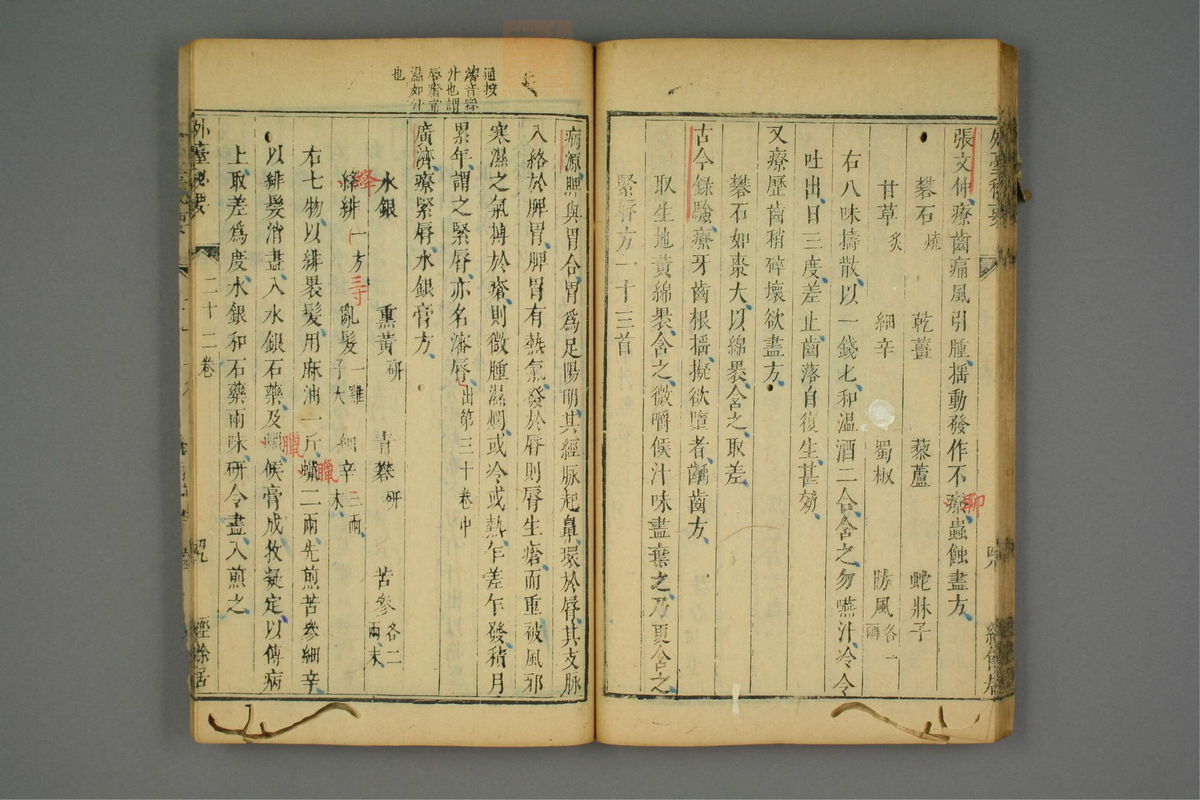 張文仲療齒痛風引腫搖動發作不療蟲蝕盡方
礬石燒 乾薑 藜蘆 蛇牀子
甘草炙 細辛 蜀椒 防風各一兩
右八味擣散以一錢匕和溫酒二合含之勿嚥汁冷令
吐出日三度差止齒落自復生甚効
又療歷齒稍碎壞欲盡方
礬石如棗大以綿褁含之取差
古今錄驗療牙齒根搖擬欲墮者齲齒方
取生地黃綿褁含之微嚼候汁味盡棄之乃更含之
緊唇方一十三首
通按
瀋音審
汁也謂
唇瘡常
濕如汁
也
病源脾與胃合胃爲足陽明其經脉起鼻環於唇其支脉
入絡於脾胃脾胃有熱氣發於唇則唇生瘡而重被風邪
寒濕之氣搏於瘡則微腫濕爛或冷或熱乍差乍發積月
累年謂之緊唇亦名瀋唇出第三十卷中
廣濟療緊唇水銀膏方
水銀 熏黃研 青礬研 苦參各二兩末
絳緋一方三寸 亂髮一雞子大 細辛三兩末
絳
三寸
右七物以緋褁髮用麻油一斤蠟二兩先煎苦參細辛
臘
以緋髮消盡入水銀石藥及候膏成攪凝定以傅病
臘
上取差爲度水銀和石藥兩味研令盡入煎之
外臺秘要 二十二卷 經餘居
聊